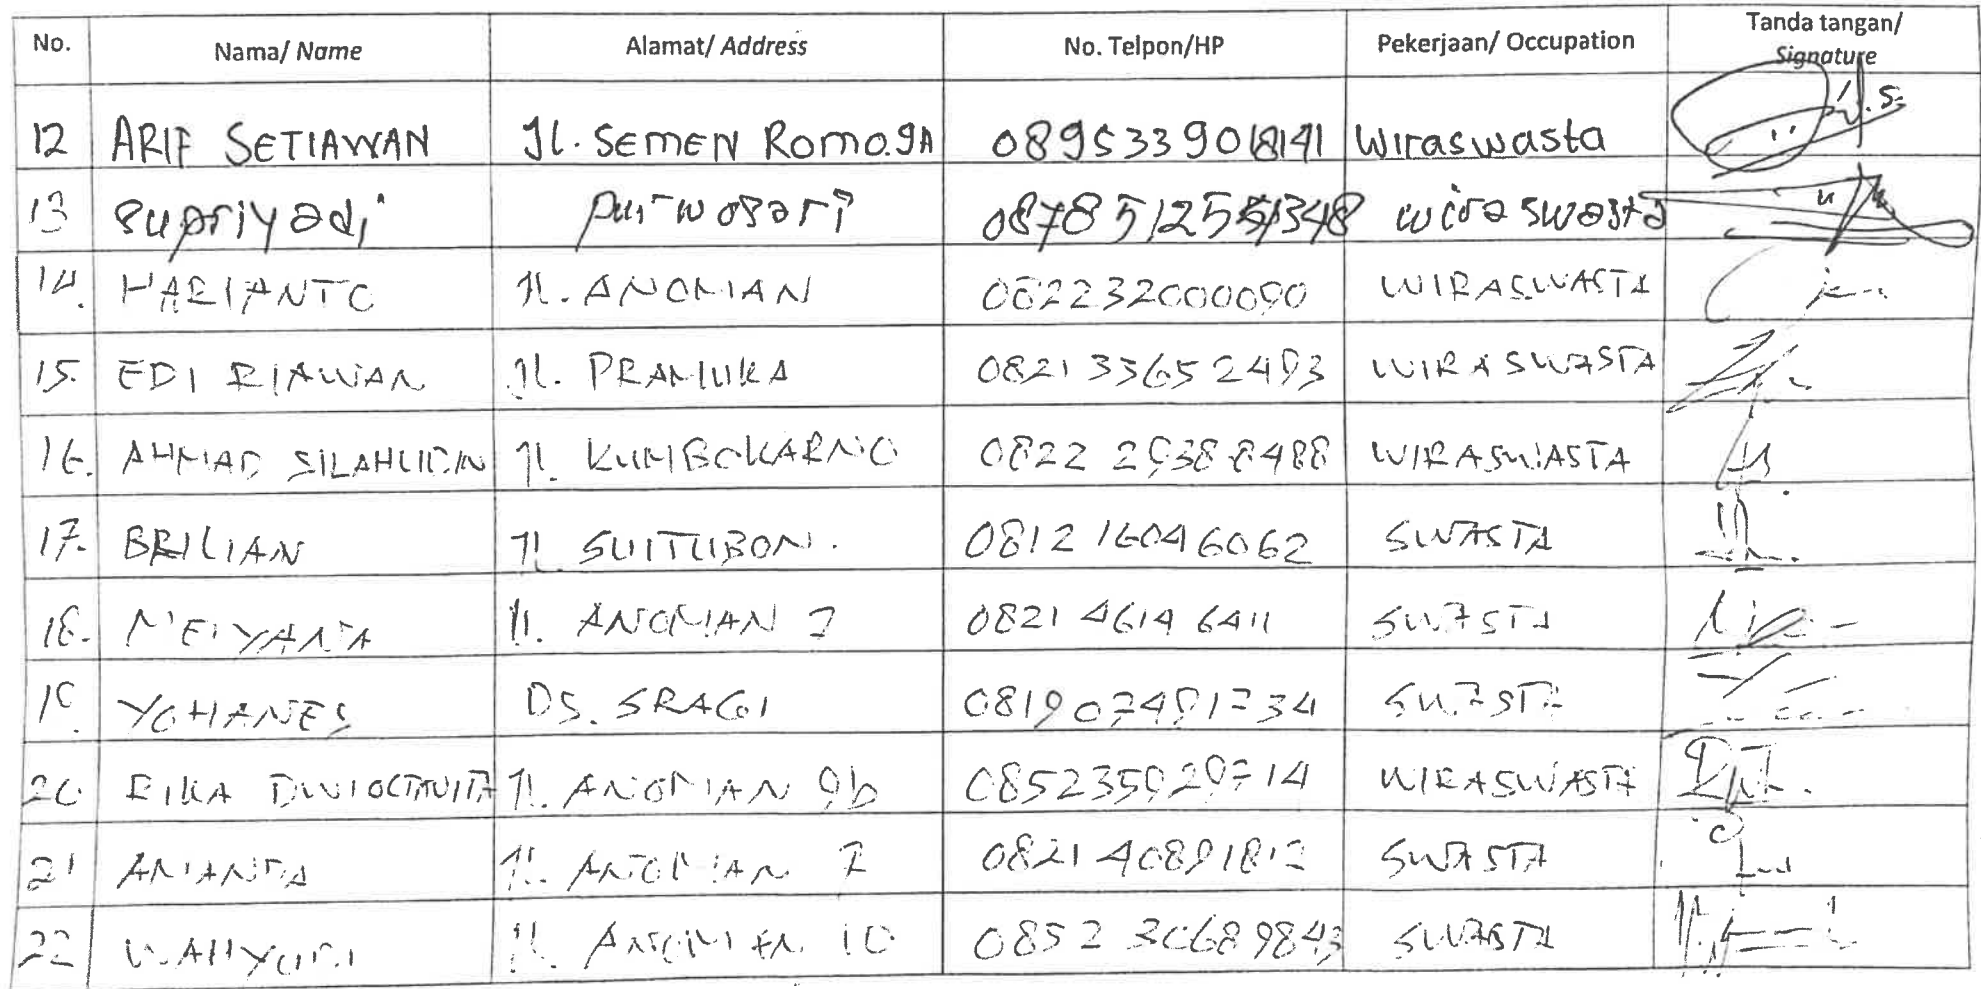 No. Nama/ Name Alamat/ Address No. Telpon/HP Pekerjaan/ Occupation Tanda tangan/ Signature
12 ARIF SETIAWAN Jl. SEMEN Romo.9A Wiraswasta
13 supriyadi purwosari wiraswasta
14. HARIANTO Jl. ANOMAN 082232000090 WIRASWASTA
15. EDI RIAWAN Jl. PRAMUKA 0821 33652493 WIRASWASTA
16. AHMAD SILAHUDIN Jl. KUMBOKARNO 0822 2938 8488 WIRASWASTA
17. BRILIAN Jl. SUITUBON. 0812 16046062 SWASTA
18. MEIYANA Jl. ANOMAN 7 0821 4614 6411 SWASTA
19. YOHANES DS. SRAGI 081907491734 SWASTA
20 RIKA DWIOCTAVITA Jl. ANOMAN 9b 085235929714 WIRASWASTA
21 ANANTA Jl. ANOMAN 7 0821 40891812 SWASTA
22 WAHYUNI Jl. ANOMAN 10 0852 30689843 SWASTA